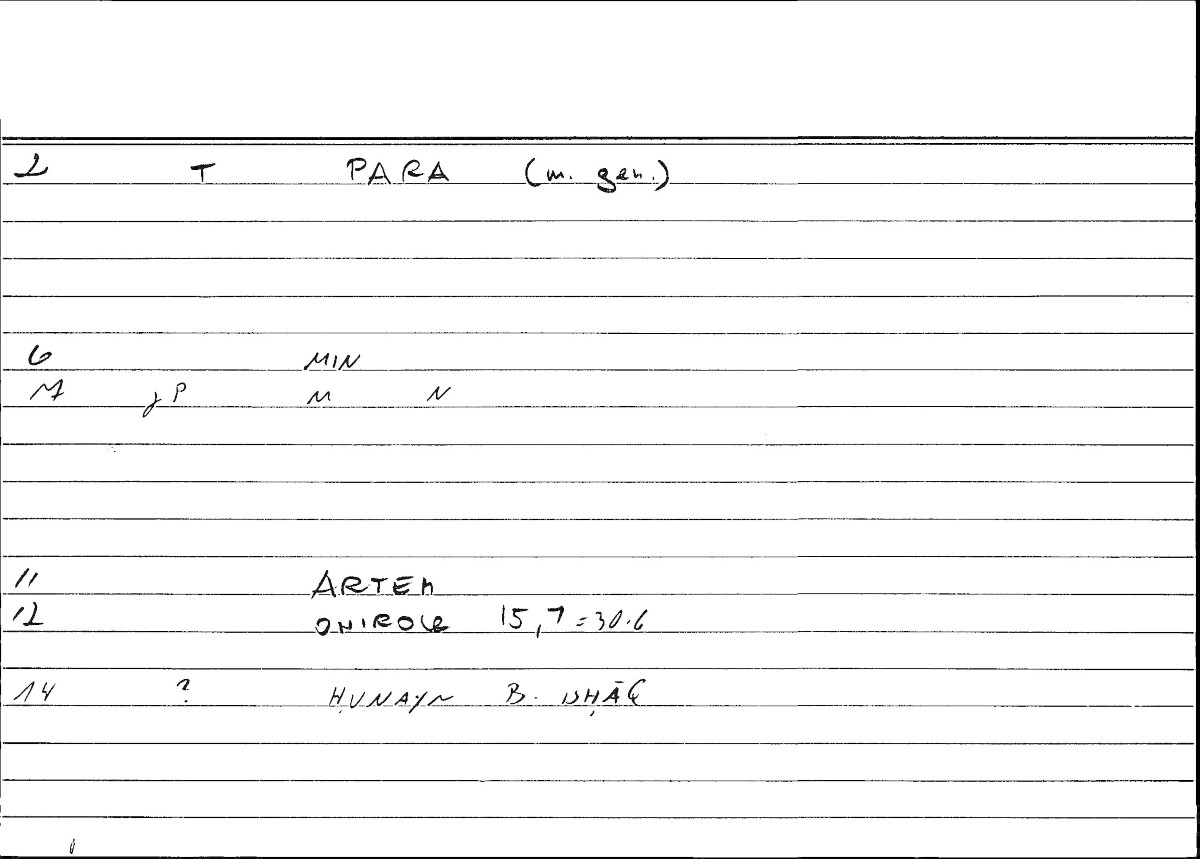 2 T PARA (m. gen.)
6 MIN
7 γP M N
11 ARTEM
12 ONIROCR 15,7=30.6
14 ? ḤUNAYN B. ISḤĀQ